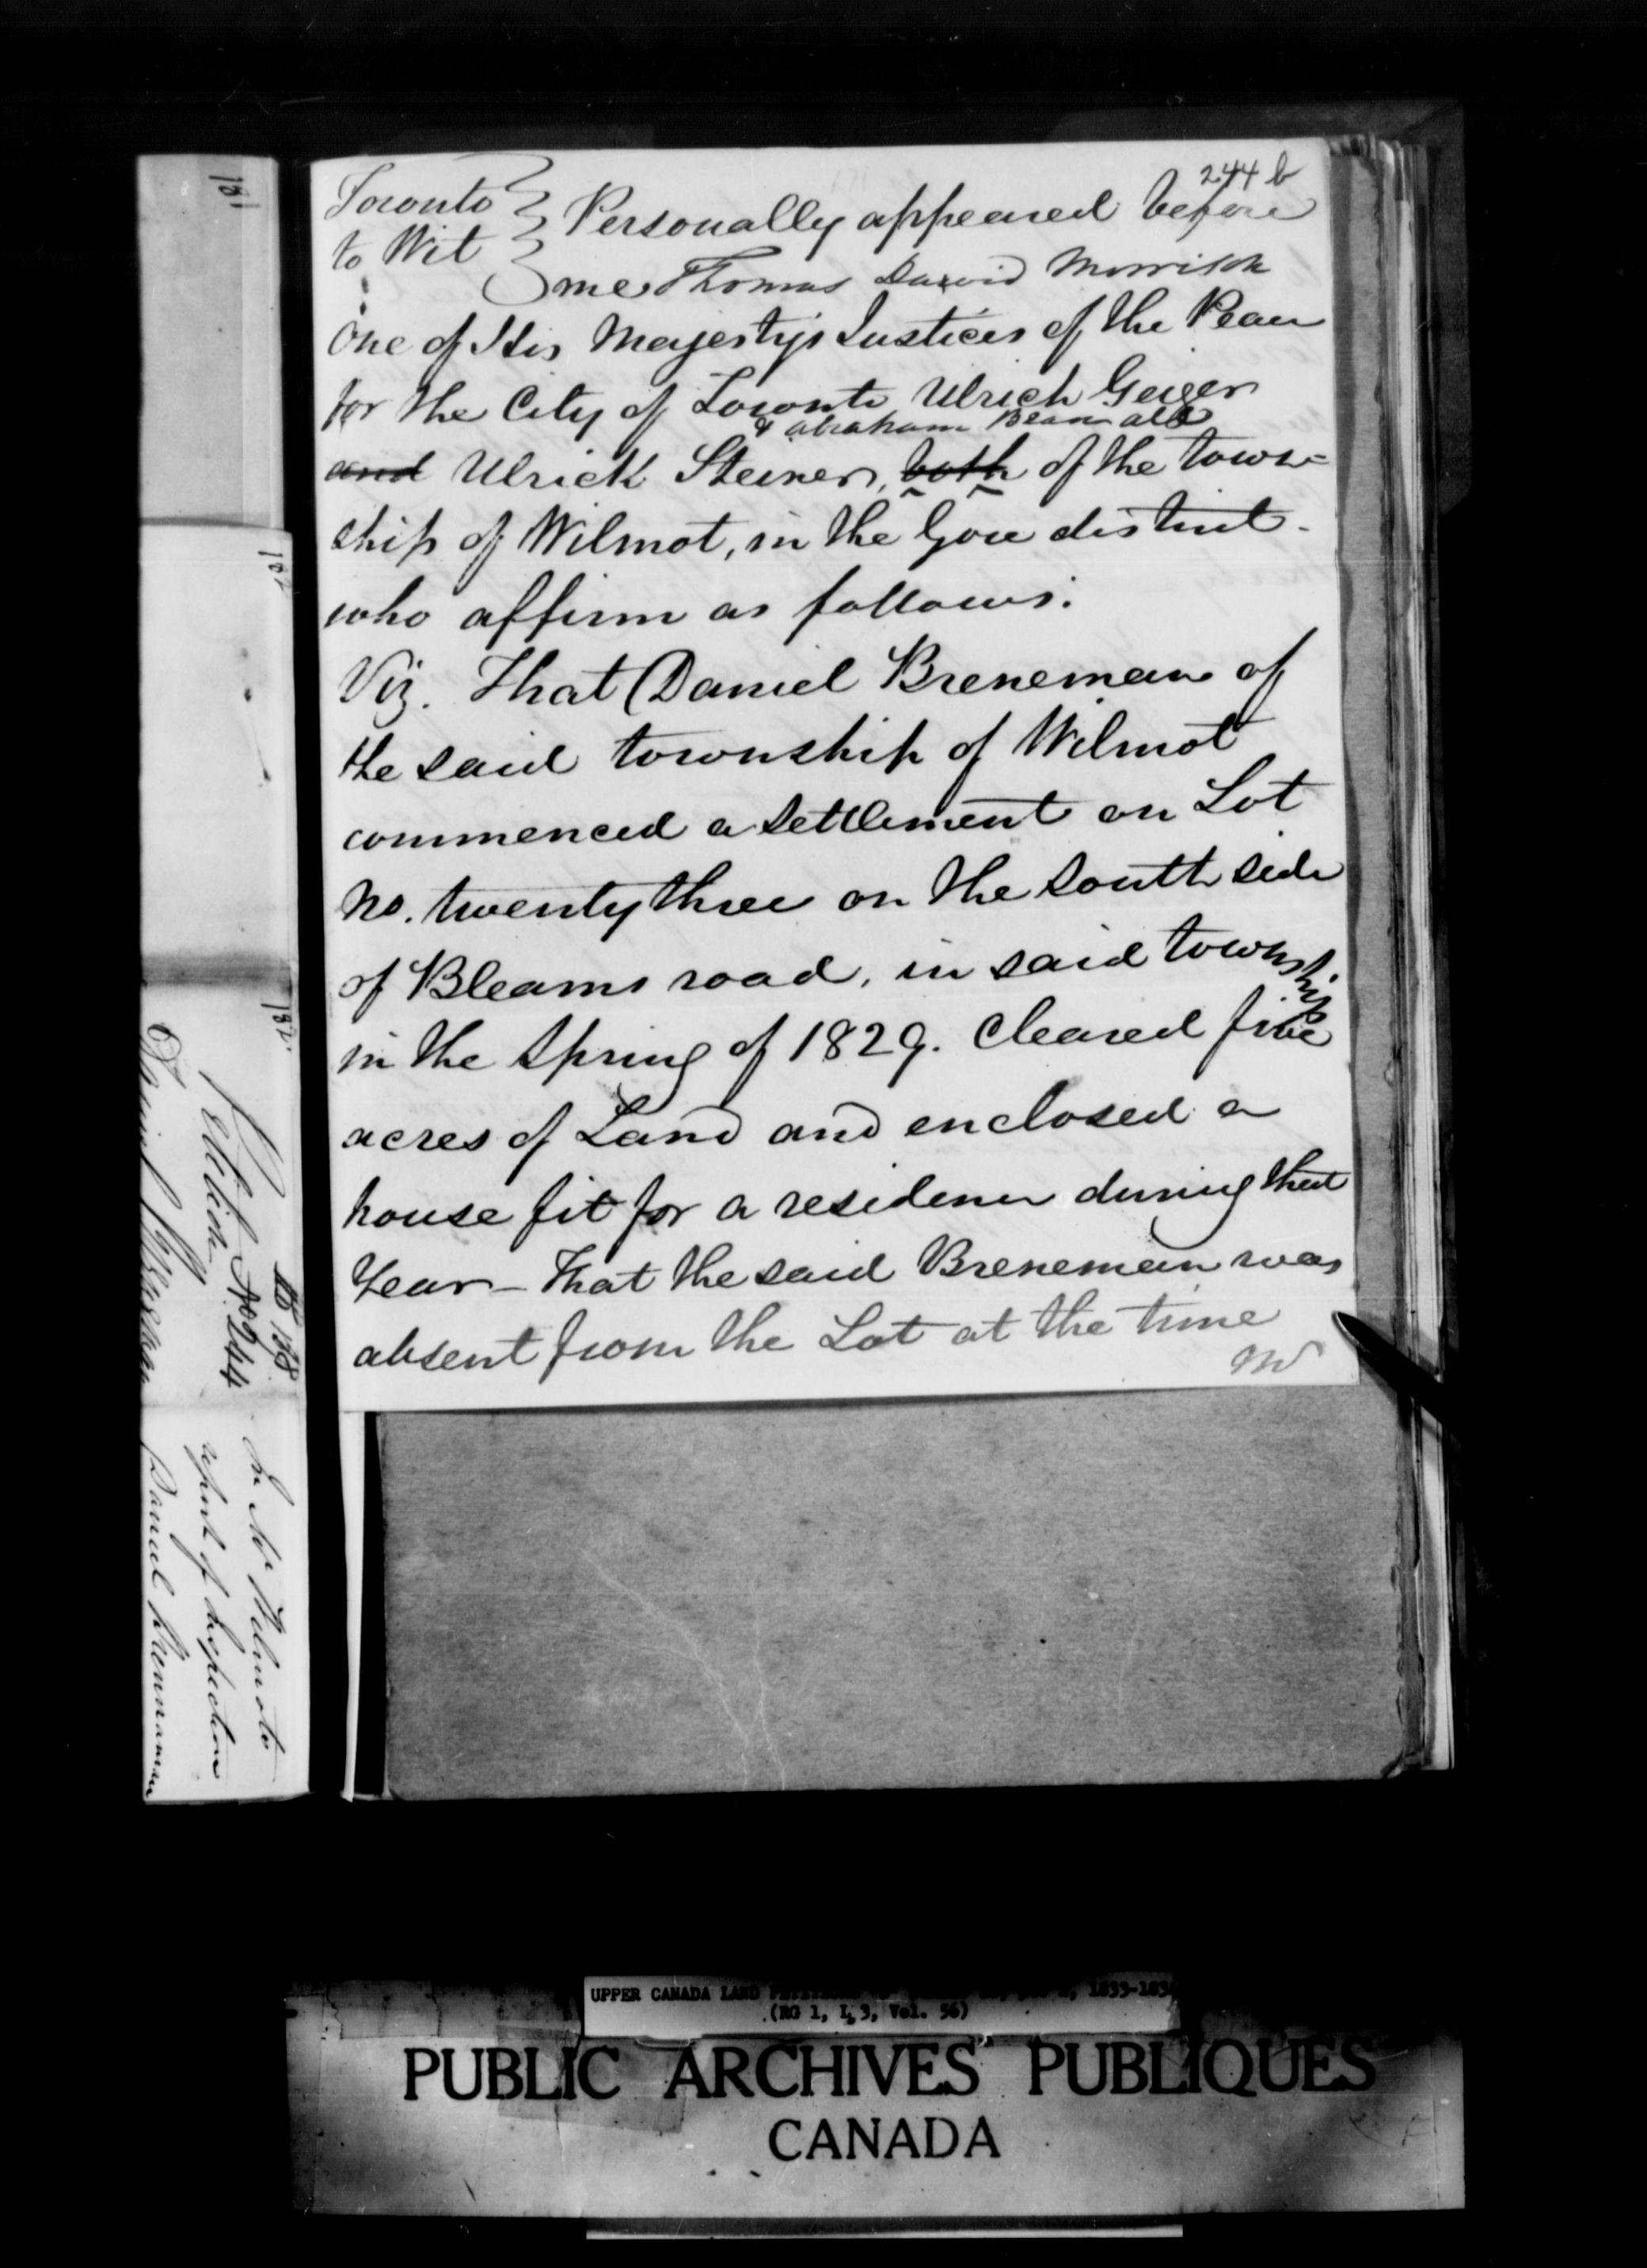 244 b
Toronto } Personally appeared before
to Wit } me Thomas David Morrison
One of His Majesty's Justices of the Peace
for the City of Toronto Ulrich Geiger
& Abraham Beam all
and Ulrick Steiner, both of the town-
ship of Wilmot, in the Gore district.
who affirm as follows.
Viz. That Daniel Breneman of
the said township of Wilmot
commenced a settlement on Lot
No. twenty three on the south side
of Bleams road, in said township
in the Spring of 1829. Cleared five
acres of Land and enclosed a
house fit for a residence during that
Year - That the said Breneman was
absent from the Lot at the time
Mr
181
182
Petition No 244
Daniel Breneman
report of inspection
Daniel Brennaman
UPPER CANADA LAND
(RG 1, L 3, Vol. 56)
PUBLIC ARCHIVES PUBLIQUES
CANADA